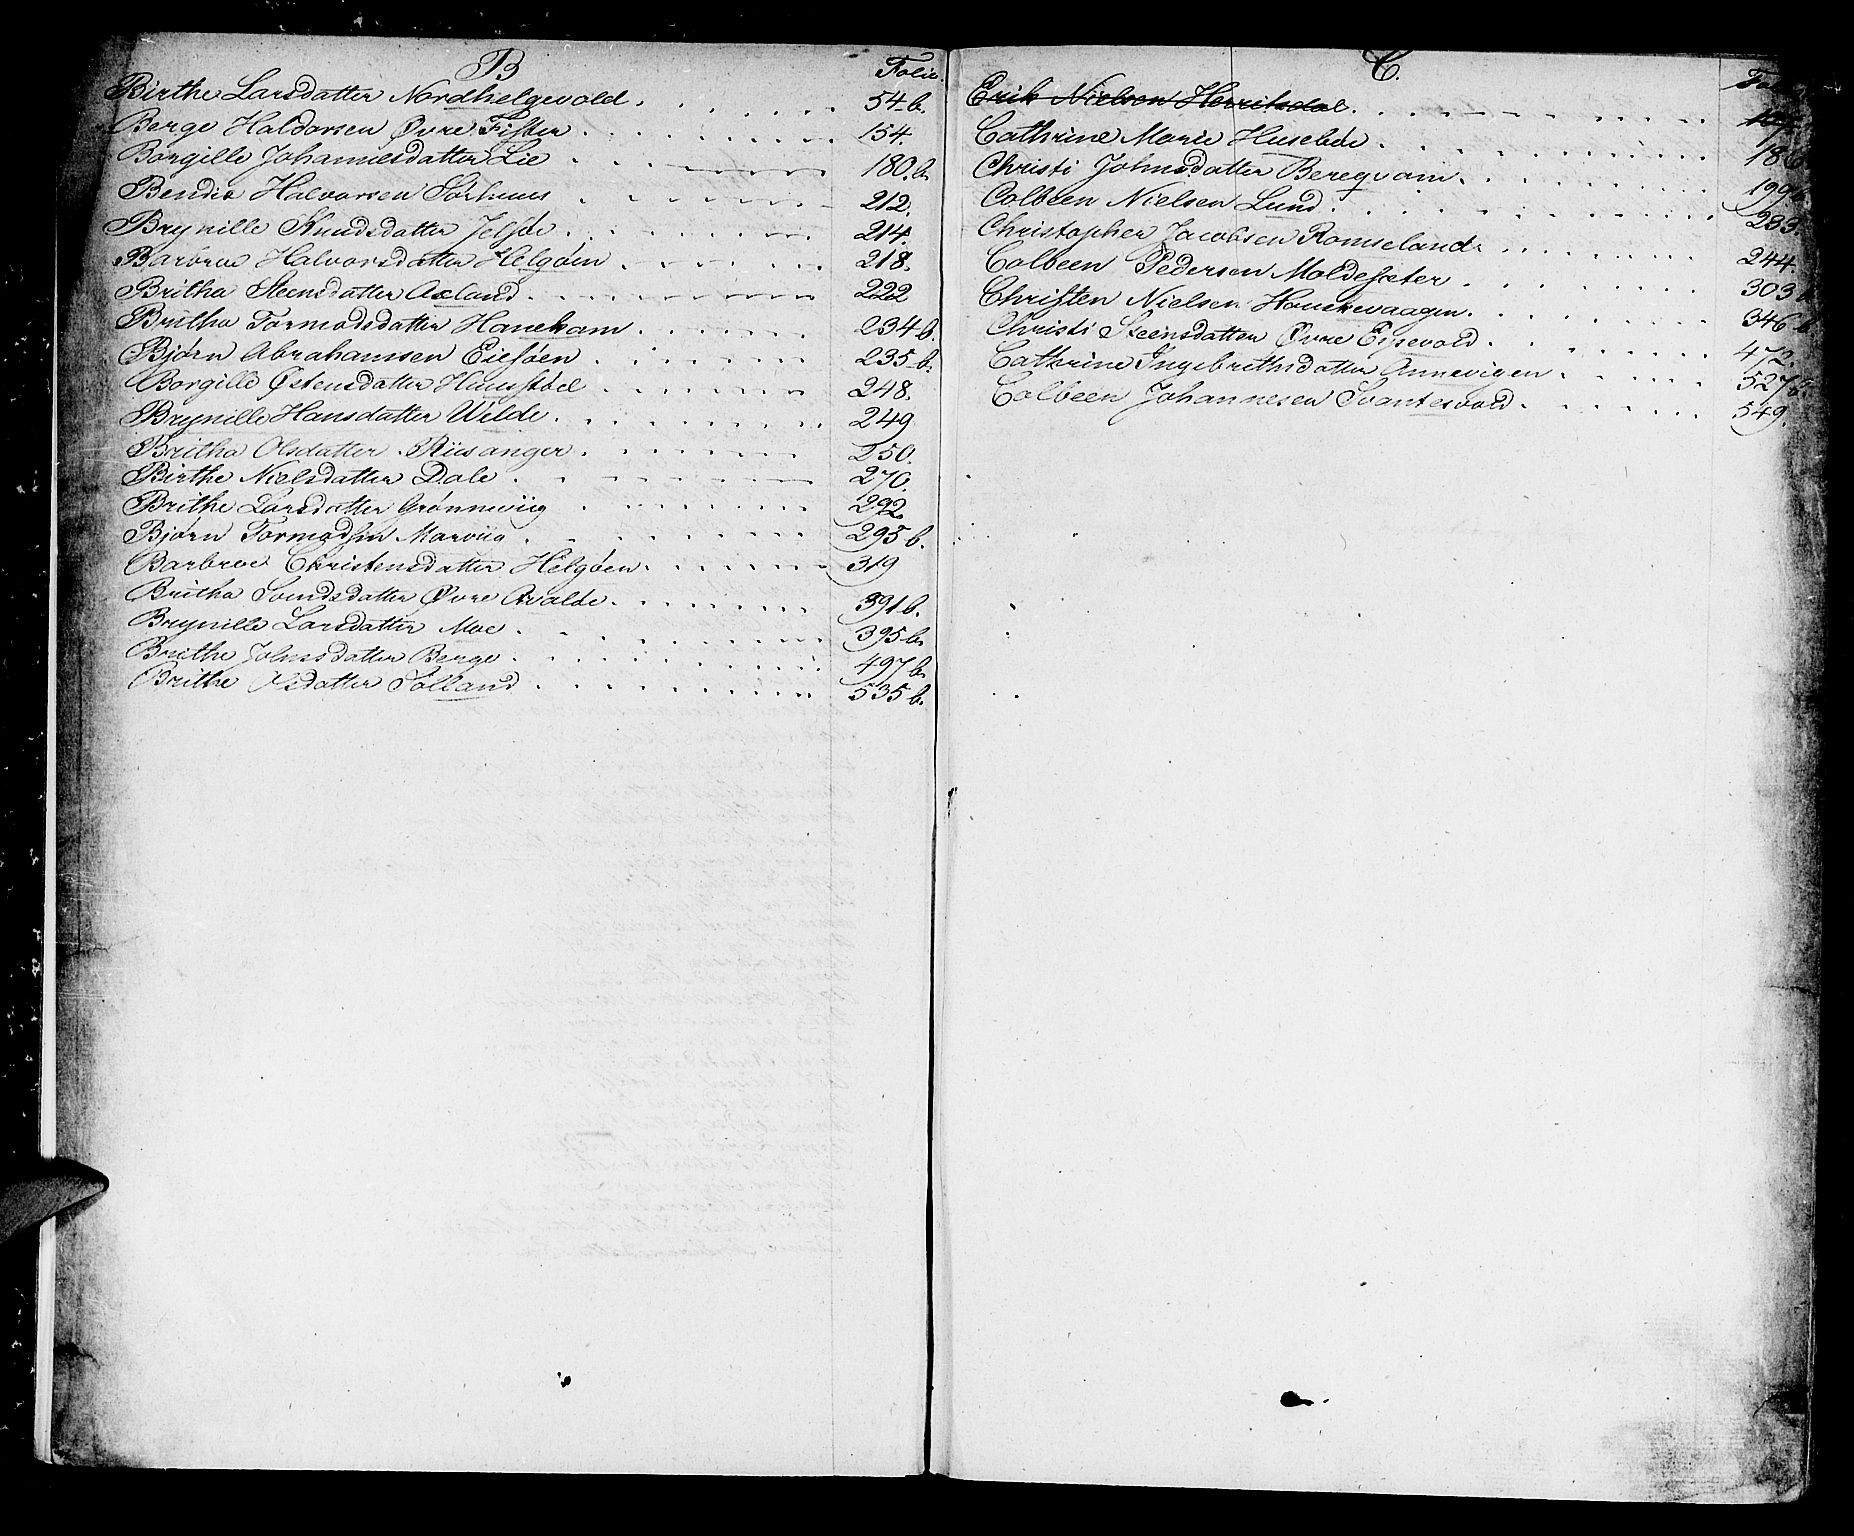 B
Folio.
Birthe Larsdatter Nordhelgevold. 54-b.
Berge Haldorsen Øvre Fister 154.
Borgille Johannesdatter Lie 180.b.
Bendix Halvorsen Sørhuus 212.
Brynille Knudsdatter Jelsøe 214.
Barbroe Halvorsdatter Helgøen 218.
Britha Steensdatter Axland 222
Britha Tormodsdatter Hanekam 234 b.
Bjørn Abrahamsen Eiesøen 235-b.
Borgille Østensdatter Huusstøel 248.
Brynille Hansdatter Wilde 249
Britha Olsdatter Riisanger 250.
Birthe Nielsdatter Dale 270.
Brithe Larsdatter Grønneviig 292
Bjørn Tormodsen Marviig 295 b.
Barbroe Christensdatter Helgøen 319
Britha Svendsdatter Øvre Qvalde 391-b.
Brynille Larsdatter Moe 395-b.
Brithe Johnsdatter Berge 497 b.
Brithe Olsdatter Solland 535 b.
C.
Erik Nielsen Herritsdal
Cathrine Marie Husebøe 186
Christi Johnsdatter Bereqvam 199 b
Colbeen Nielsen Lund 233.
Christopher Jacobsen Romseland 244.
Colbeen Pedersen Moldesæter 303 b
Christen Nielsen Hauskevaagen 346-b
Christi Steensdatter Øvre Eigevold 472.
Cathrine Ingebrethsdatter Annevigen 527 b.
Colbeen Johannesen Svantesvold 549.